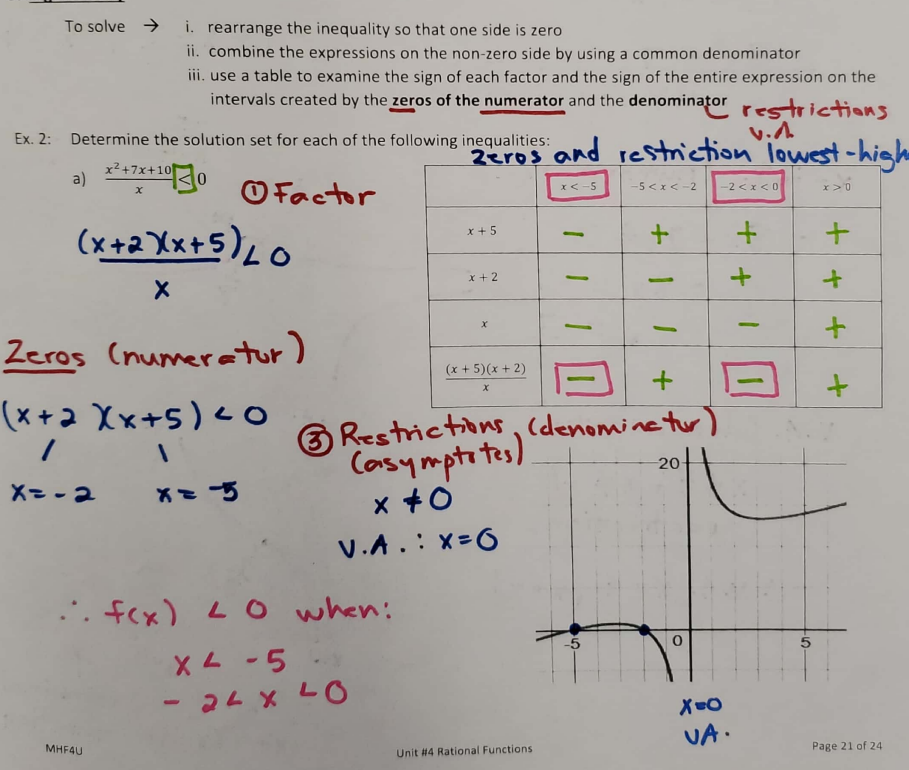 To solve → i. rearrange the inequality so that one side is zero
ii. combine the expressions on the non-zero side by using a common denominator
iii. use a table to examine the sign of each factor and the sign of the entire expression on the
intervals created by the zeros of the numerator and the denominator
restrictions
V.A
Ex. 2: Determine the solution set for each of the following inequalities:
zeros and restriction lowest-high
a) x²+7x+10/x < 0
① Factor
(x+2)(x+5)/x < 0
x < -5 -5 < x < -2 -2 < x < 0 x > 0
x + 5 − + + +
x + 2 − − + +
x − − − +
(x + 5)(x + 2)/x − + − +
Zeros (numerator)
(x+2)(x+5) < 0
x = -2 x = -5
③ Restrictions, (denominator)
(asymptotes)
x ≠ 0
V.A. : x=0
20
-5 0 5
x=0
VA.
∴ f(x) < 0 when:
x < -5
-2 < x < 0
MHF4U Unit #4 Rational Functions Page 21 of 24